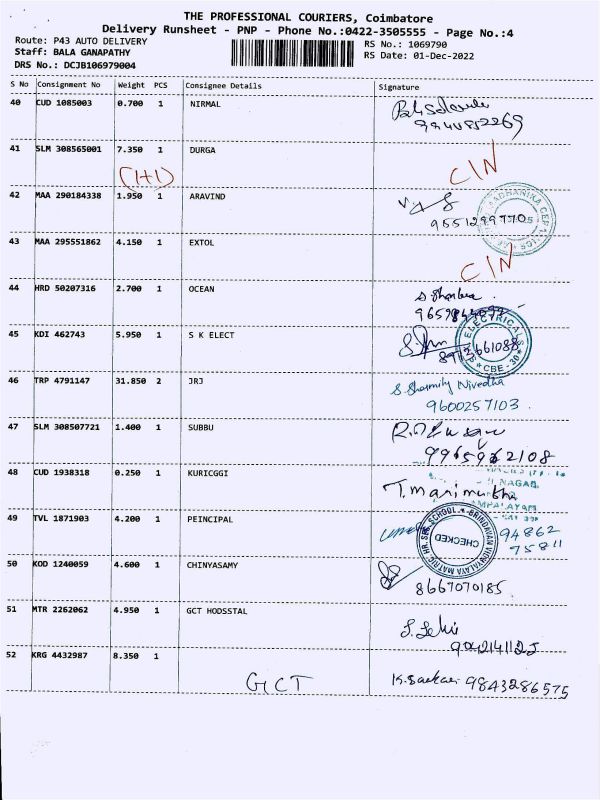 THE PROFESSIONAL COURIERS, Coimbatore
Delivery Runsheet - PNP - Phone No.:0422-3505555 - Page No.:4
Route: P43 AUTO DELIVERY
RS No.: 1069790
Staff: BALA GANAPATHY
RS Date: 01-Dec-2022
DRS No.: DCJB106979004
S No Consignment No Weight PCS Consignee Details Signature
40 CUD 1085003 0.700 1 NIRMAL
41 SLM 308565001 7.350 1 DURGA
CIN
(1+1)
42 MAA 290184338 1.950 1 ARAVIND
43 MAA 295551862 4.150 1 EXTOL
CIN
44 HRD 50207316 2.700 1 OCEAN
45 KDI 462743 5.950 1 S K ELECT
ELECTRICALS
CBE - 30
46 TRP 4791147 31.850 2 JRJ
S. Sharmily Nivedha
9600257103
47 SLM 308507721 1.400 1 SUBBU
48 CUD 1938318 0.250 1 KURICGGI
NAGAR,
T. Marimuthu
49 TVL 1871903 4.200 1 PEINCIPAL
BRINDAVAN VIDYALAYA MATRIC HR. SEC. SCHOOL
CHECKED
94862
75811
50 KOD 1240059 4.600 1 CHINYASAMY
8667070185
51 MTR 2262062 4.950 1 GCT HODSSTAL
52 KRG 4432987 8.350 1
GCT
9843286575